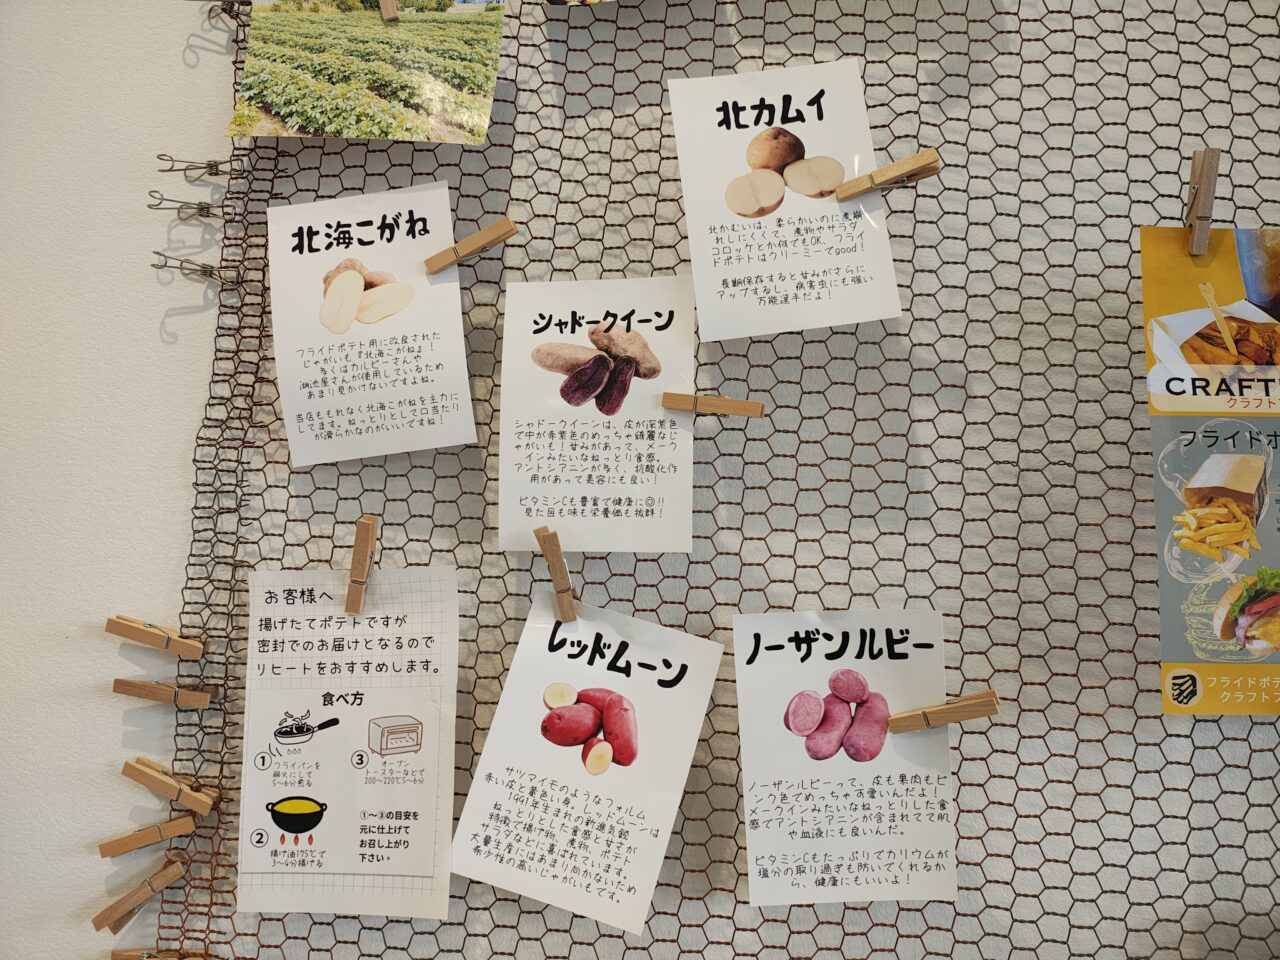 北カムイ
北かむいは、柔らかいのに煮崩
れしにくくて、煮物やサラダ
コロッケとか何でもOK、フライ
ドポテトはクリーミーでgood!
長期保存すると甘みがさらに
アップするし、病害虫にも強い
万能選手だよ!
北海こがね
フライドポテト用に改良された
じゃがいも『北海こがね』!
多くはカルビーさんや
湖池屋さんが使用しているため
あまり見かけないですよね。
当店ももれなく北海こがねを主力に
してます。ねっとりとして口当たり
が滑らかなのがいいですね!
シャドークイーン
シャドークイーンは、皮が深紫色
で中が赤紫色のめっちゃ綺麗なじ
ゃがいも!甘みがあって、メーク
インみたいなねっとり食感。
アントシアニンが多く、抗酸化作
用があって美容にも良い!
ビタミンCも豊富で健康に◎!!
見た目も味も栄養価も抜群!
お客様へ
揚げたてポテトですが
密封でのお届けとなるので
リヒートをおすすめします。
食べ方
①
フライパンを
弱火にして
5~6分煎る
③
オーブン
トースターなどで
200~220℃5~6分
②
揚げ油175℃で
3~4分揚げる
①~③の目安を
元に仕上げて
お召し上がり
下さい。
レッドムーン
サツマイモのようなフォルム
赤い皮と黄色い身。レッドムーンは
1991年生まれの新進気鋭
ねっとりとした食感と甘さが
特徴で揚げ物、煮物、ポテト
サラダなどに喜ばれています。
大量生産にはあまり向かないため
希少性の高いじゃがいもです。
ノーザンルビー
ノーザンルビーって、皮も果肉もピ
ンク色でめっちゃ可愛いんだよ!
メークインみたいなねっとりした食
感でアントシアニンが含まれてて肌
や血液にも良いんだ。
ビタミンCもたっぷりでカリウムが
塩分の取り過ぎも防いでくれるか
ら、健康にもいいよ!
CRAFT
クラフト
フライドポ
フライドポテ
クラフト